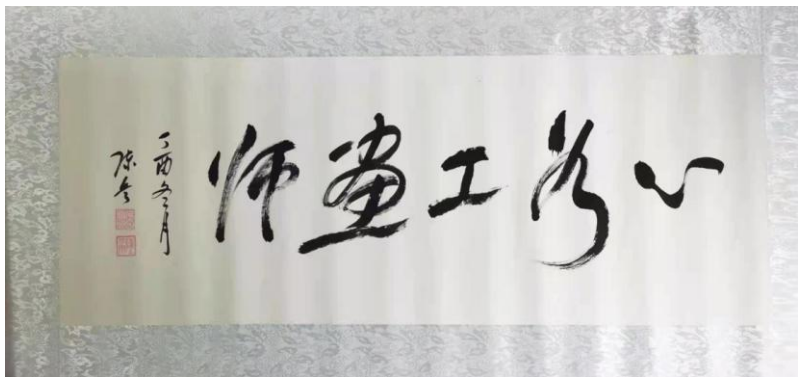 心如工畫师
丁酉冬月
陈